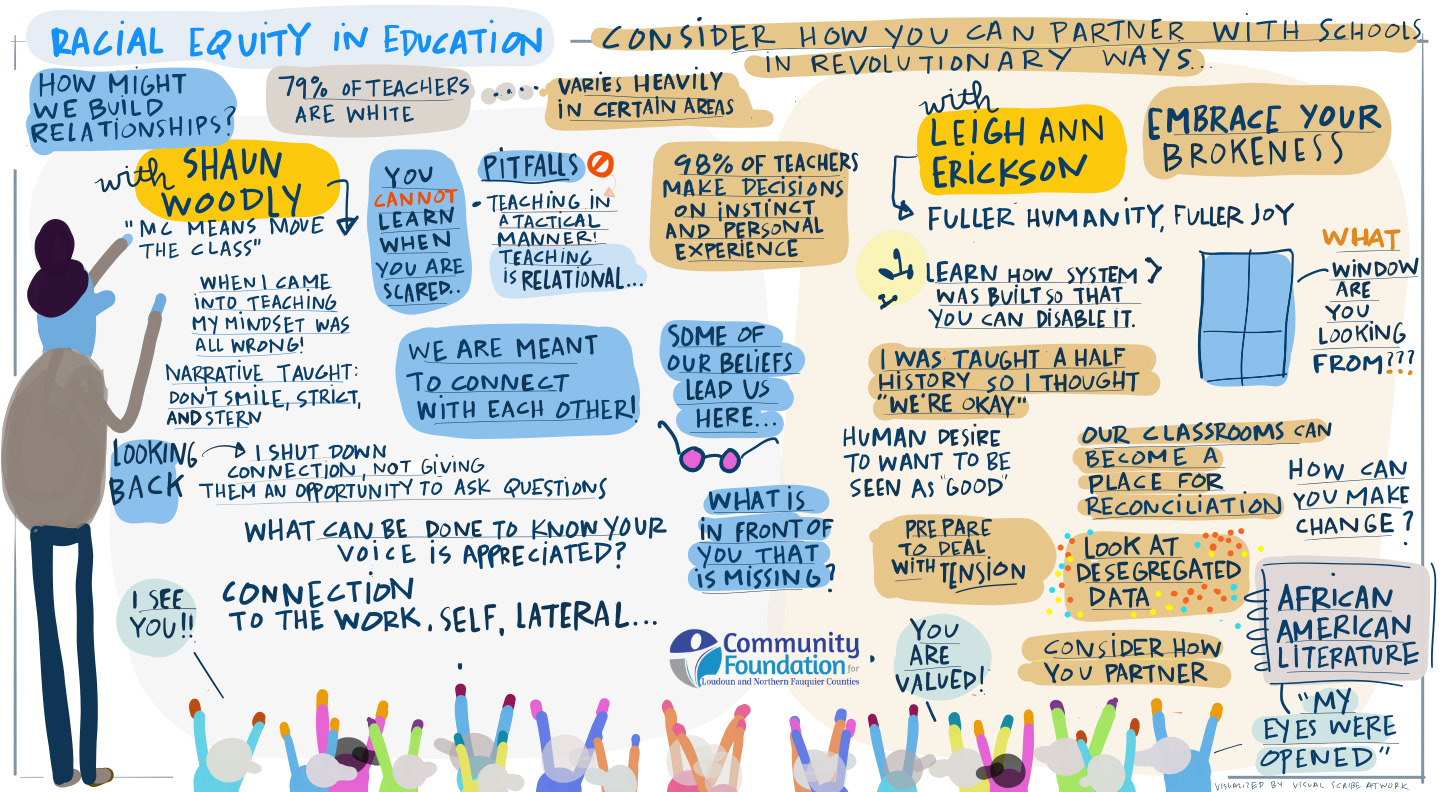 RACIAL EQUITY IN EDUCATION
CONSIDER HOW YOU CAN PARTNER WITH SCHOOLS
IN REVOLUTIONARY WAYS...
HOW MIGHT
WE BUILD
RELATIONSHIPS?
79% OF TEACHERS
ARE WHITE
VARIES HEAVILY
IN CERTAIN AREAS
with SHAUN
WOODLY
"MC MEANS MOVE
THE CLASS"
WHEN I CAME
INTO TEACHING
MY MINDSET WAS
ALL WRONG!
NARRATIVE TAUGHT:
DON'T SMILE, STRICT,
AND STERN
YOU
CANNOT
LEARN
WHEN
YOU ARE
SCARED..
PITFALLS
• TEACHING IN
A TACTICAL
MANNER!
TEACHING
IS RELATIONAL...
98% OF TEACHERS
MAKE DECISIONS
ON INSTINCT
AND PERSONAL
EXPERIENCE
WE ARE MEANT
TO CONNECT
WITH EACH OTHER!
SOME OF
OUR BELIEFS
LEAD US
HERE...
LOOKING
BACK
I SHUT DOWN
CONNECTION, NOT GIVING
THEM AN OPPORTUNITY TO ASK QUESTIONS
WHAT CAN BE DONE TO KNOW YOUR
VOICE IS APPRECIATED?
WHAT IS
IN FRONT OF
YOU THAT
IS MISSING?
I SEE
YOU!!
CONNECTION
TO THE WORK, SELF, LATERAL...
Community
Foundation for
Loudoun and Northern Fauquier Counties
with
LEIGH ANN
ERICKSON
EMBRACE YOUR
BROKENESS
FULLER HUMANITY, FULLER JOY
LEARN HOW SYSTEM
WAS BUILT SO THAT
YOU CAN DISABLE IT.
WHAT
WINDOW
ARE
YOU
LOOKING
FROM???
I WAS TAUGHT A HALF
HISTORY SO I THOUGHT
"WE'RE OKAY"
HUMAN DESIRE
TO WANT TO BE
SEEN AS "GOOD"
OUR CLASSROOMS CAN
BECOME A
PLACE FOR
RECONCILIATION
HOW CAN
YOU MAKE
CHANGE?
PREPARE
TO DEAL
WITH TENSION
LOOK AT
DESEGREGATED
DATA
AFRICAN
AMERICAN
LITERATURE
YOU
ARE
VALUED!
CONSIDER HOW
YOU PARTNER
"MY
EYES WERE
OPENED"
VISUALIZED BY VISUAL SCRIBE ATWORK